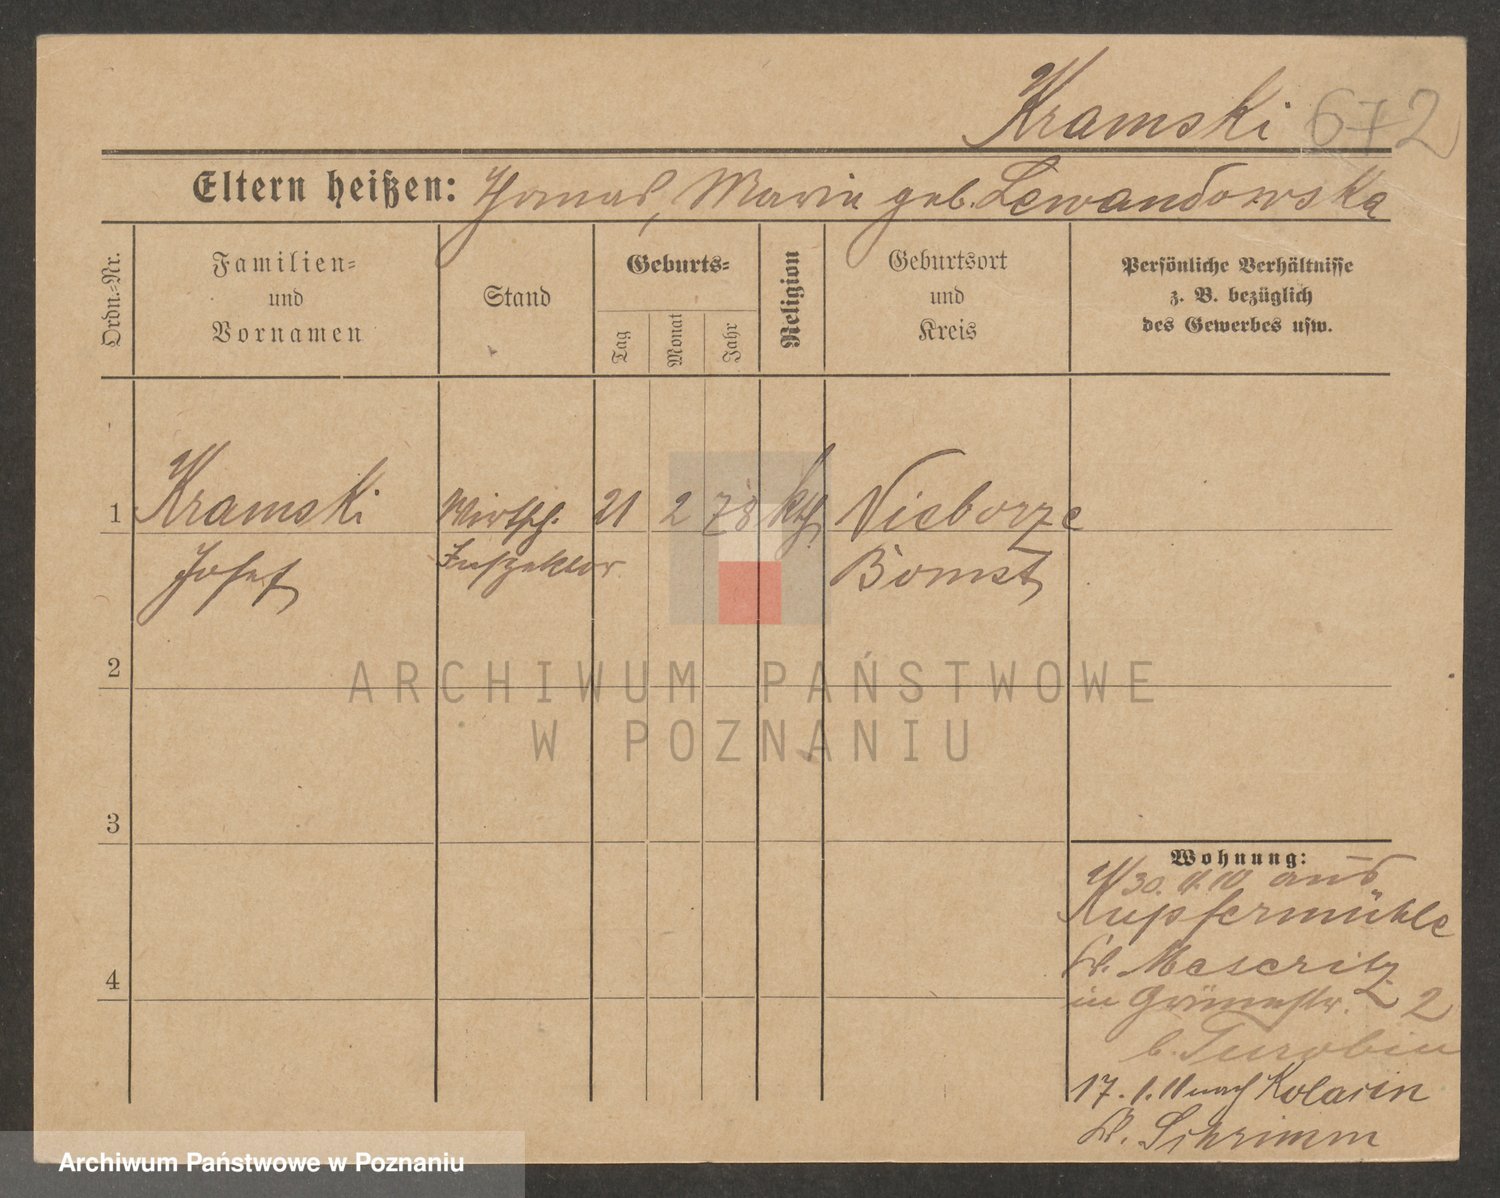 Kramski 672
Eltern heißen: Thomas, Marie geb. Lewandowska
Ordn.-Nr.
Familien-
und
Vornamen
Stand
Geburts-
Tag
Monat
Jahr
Religion
Geburtsort
und
Kreis
Persönliche Verhältnisse
z. B. bezüglich
des Gewerbes usw.
1 Kramski Wirtsch. 21 2 78 kth Nieborze
Josef Inspektor Bomst
2
ARCHIWUM PAŃSTWOWE
W POZNANIU
3
Wohnung:
30. 11. 10 aus
Kupfermühle
Kr. Meseritz
in Grünestr. 2
b. Turobin
17. 1. 11 nach Kolacin
Kr. Schrimm
4
Archiwum Państwowe w Poznaniu